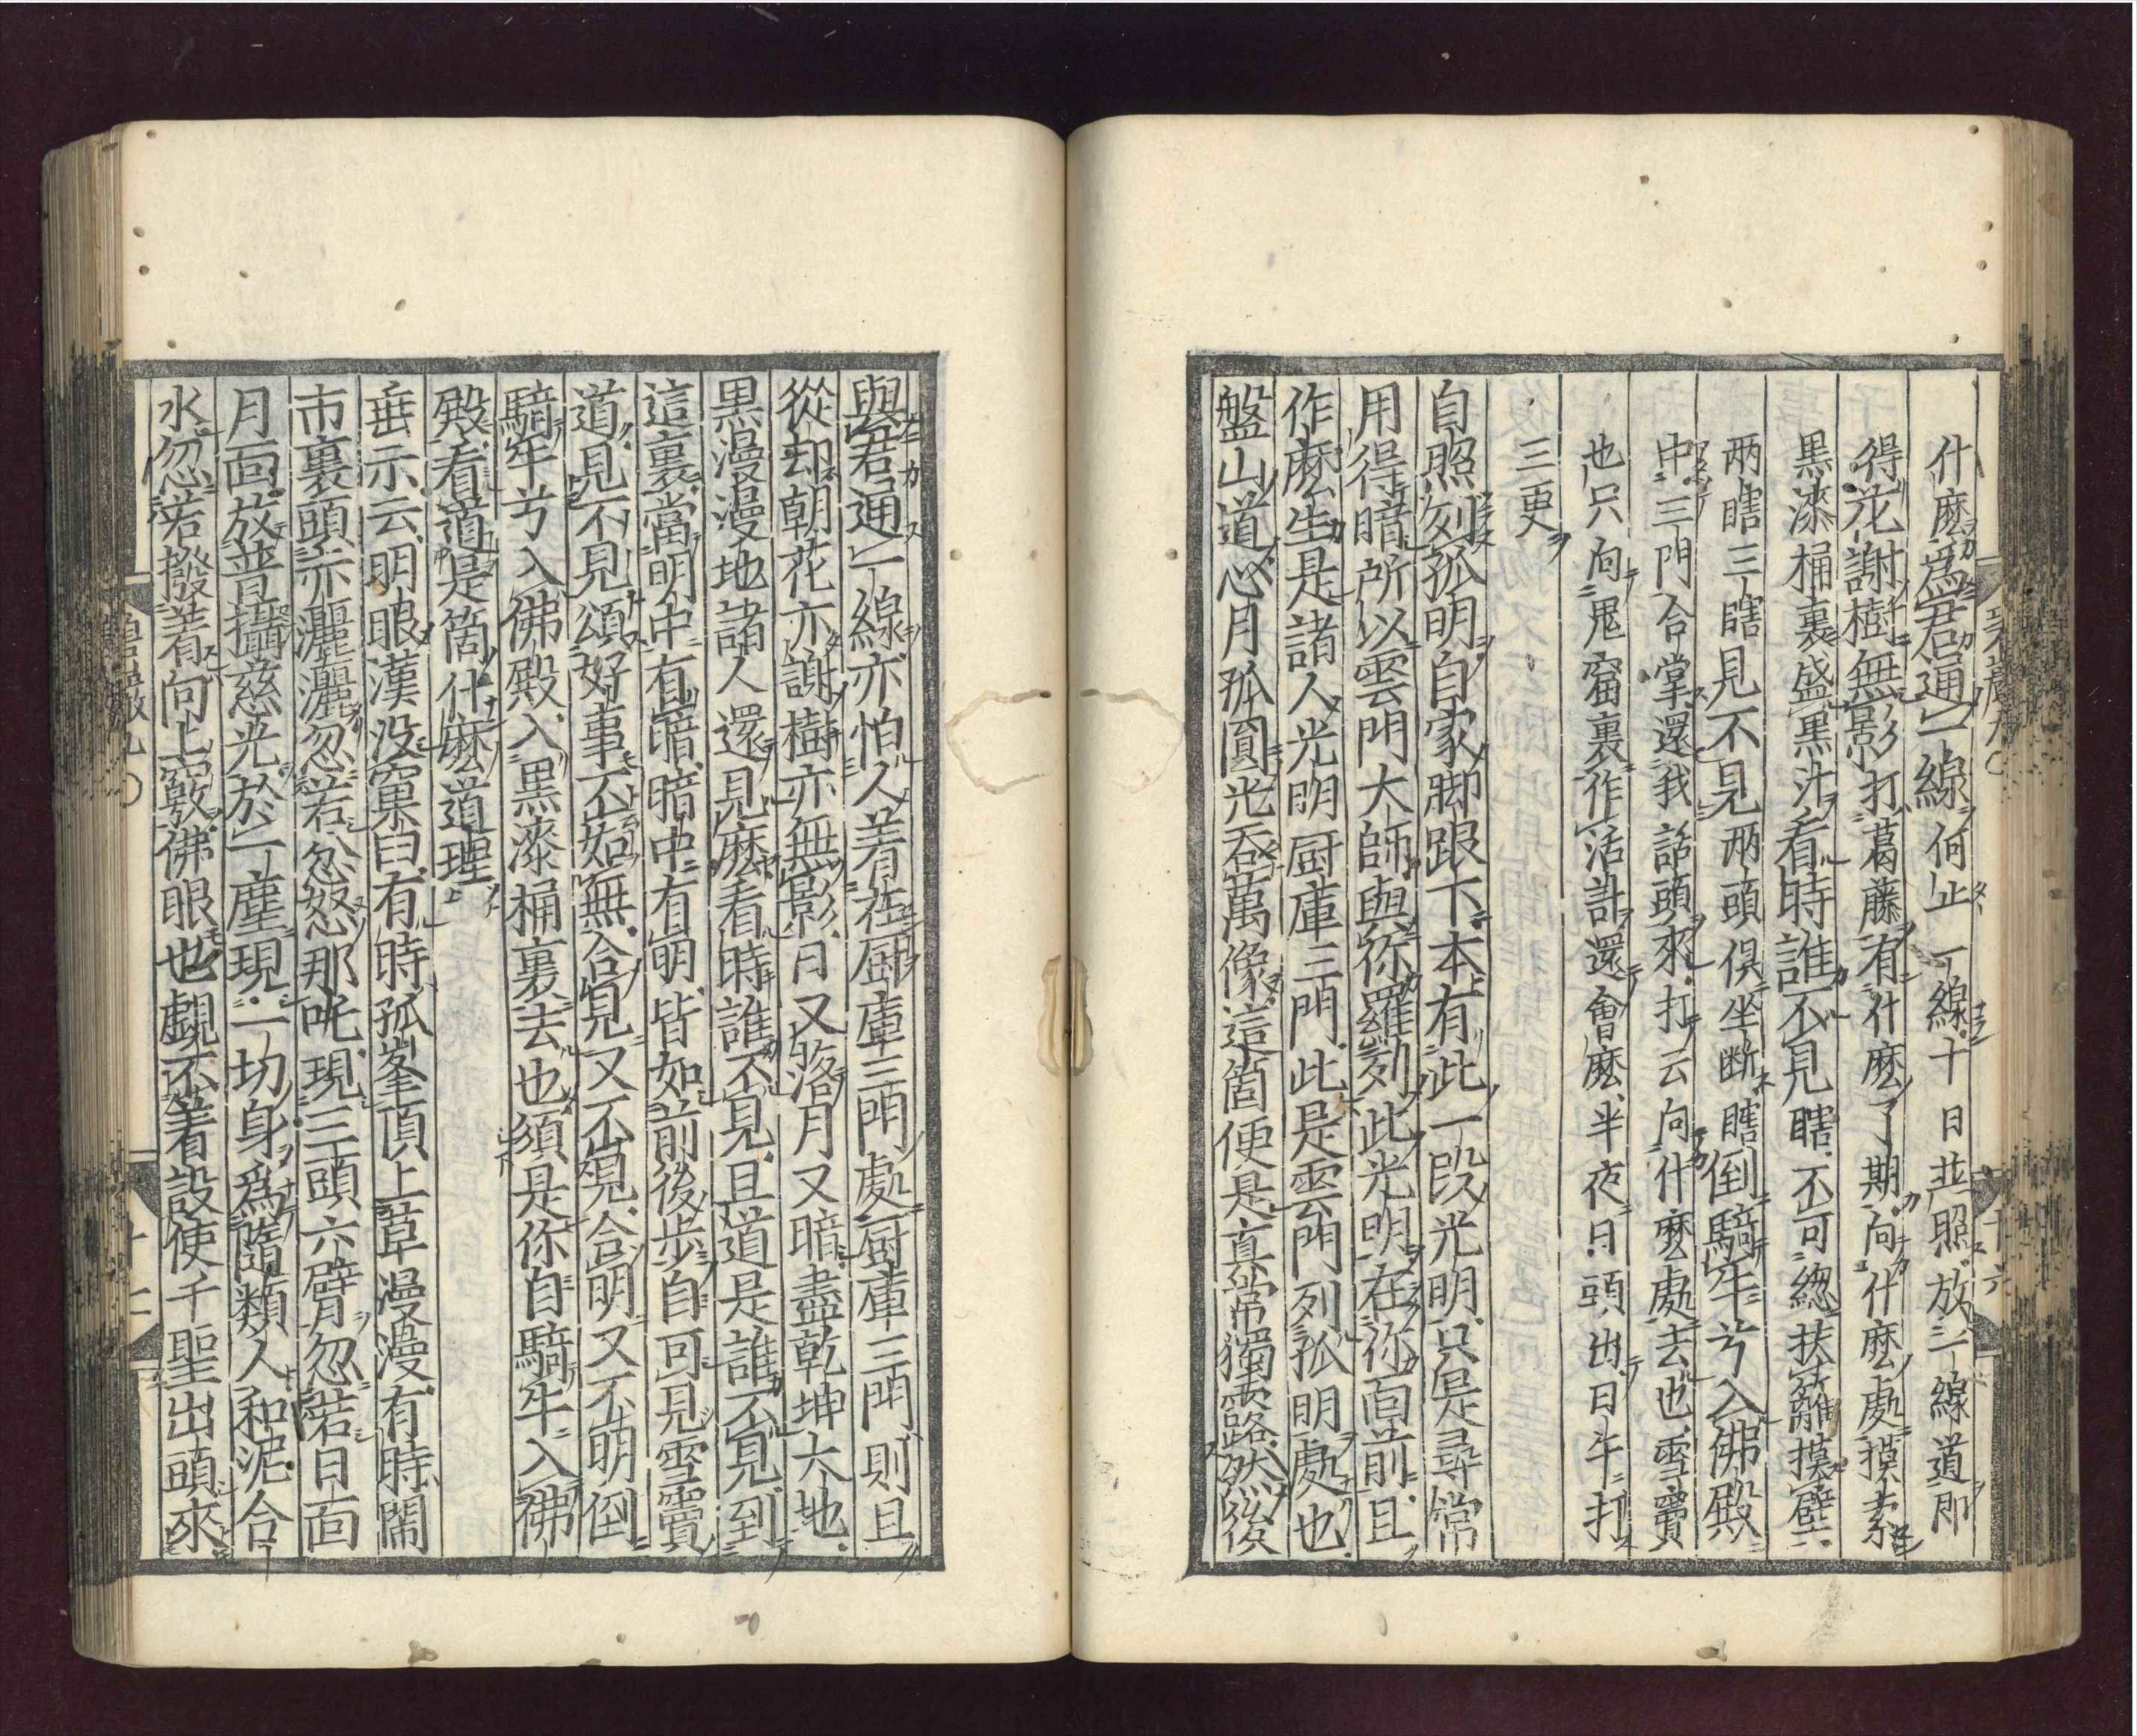 什麽爲君通一線何止一線十日並照放一線道即
得花謝樹無影打葛藤有什麽了期向什麽處摸索
黒漆桶裏盛黒汁看時誰不見瞎不可緫扶籬摸壁
兩瞎三瞎見不見兩頭俱坐斷瞎倒騎牛兮入佛殿
中三門合掌還我話頭來打云向什麽處去也雪竇
也只向鬼窟裏作活計還會麽半夜日頭出日午打
三更
自照列孤明自家脚跟下本有此一段光明只是尋常
用得暗所以雲門大師與你羅列此光明在你面前且
作麽生是諸人光明厨庫三門此是雲門列孤明處也
盤山道心月孤圓光吞萬像這箇便是真常獨露然後
與君通一線亦怕人着在厨庫三門處厨庫三門則且
從却朝花亦謝樹亦無影日又落月又暗盡乾坤大地
黒漫漫地諸人還見麽看時誰不見且道是誰不見到
這裏當明中有暗暗中有明皆如前後歩自可見雪竇
道見不見頌好事不如無合見又不見合明又不明倒
騎牛兮入佛殿入黒漆桶裏去也須是你自騎牛入佛
殿看道是箇什麽道理
垂示云明眼漢没窠臼有時孤峯頂上草漫漫有時閙
市裏頭赤灑灑忽若忿怒那吒現三頭六臂忽若日面
月面放普攝慈光於一塵現一切身爲隨類人和泥合
水忽若撥着向上竅佛眼也覷不着設使千聖出頭來